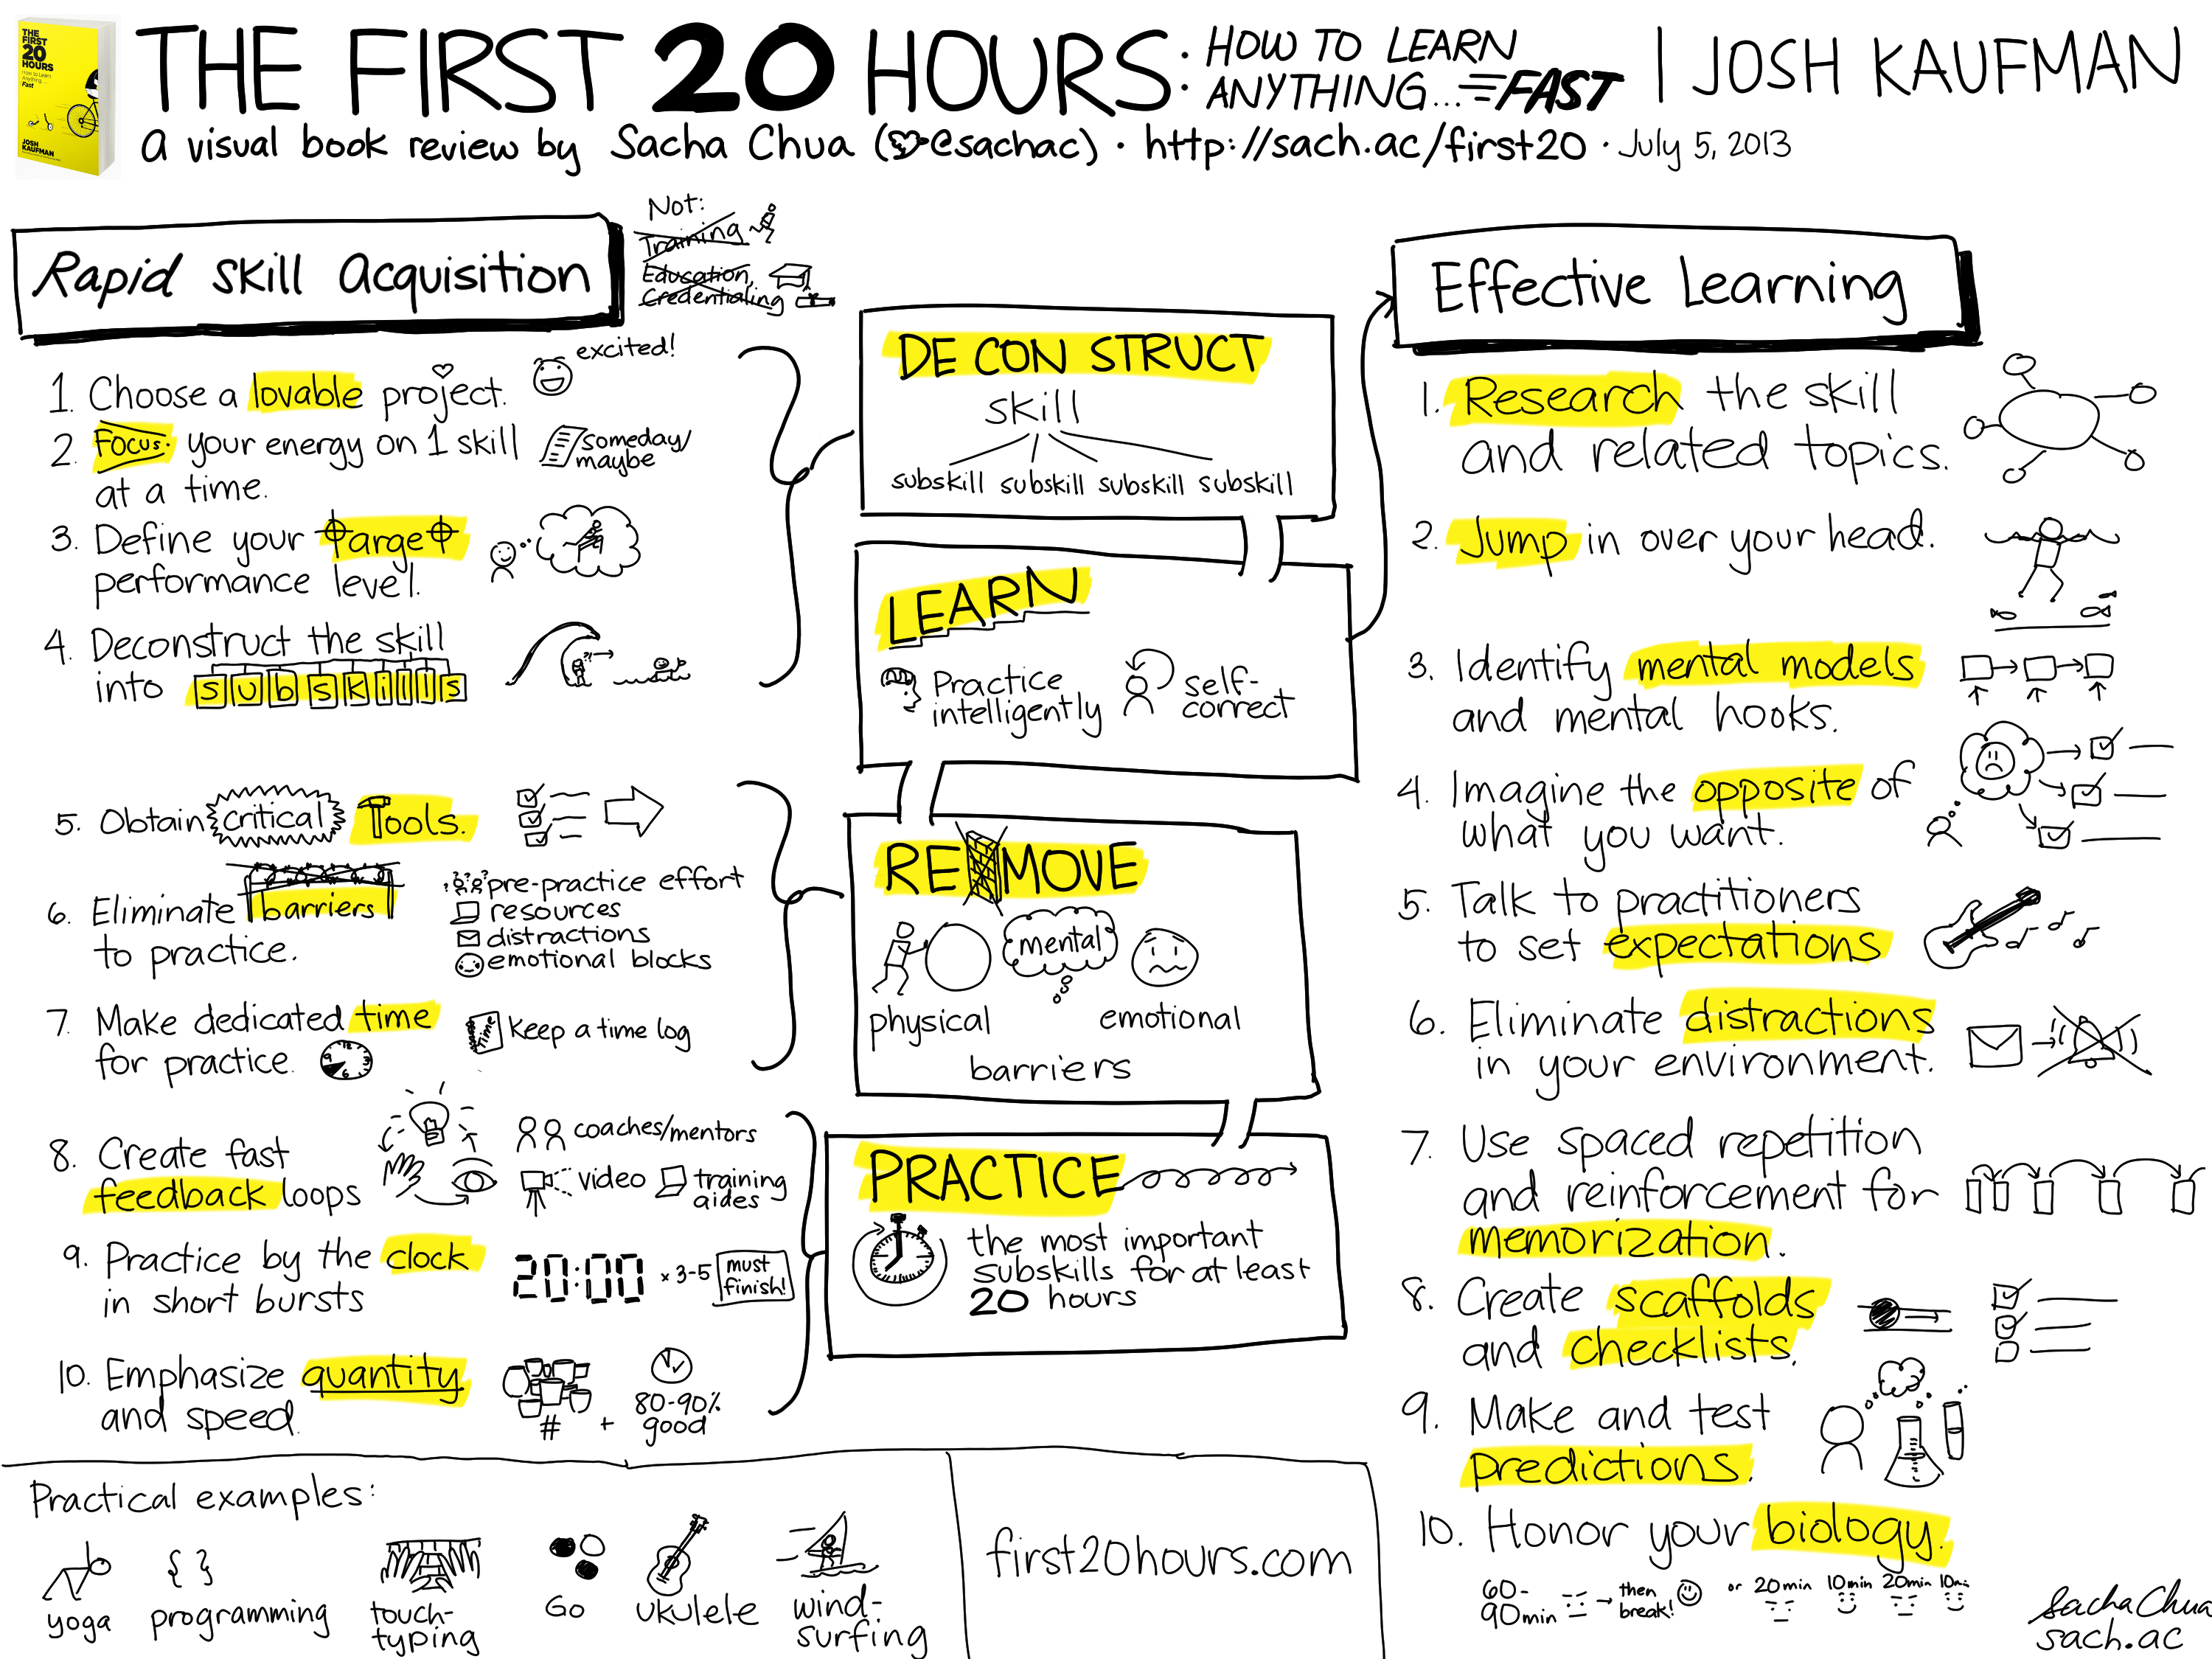 THE FIRST 20 HOURS
How to Learn
Anything...
Fast
JOSH KAUFMAN
THE FIRST 20 HOURS: HOW TO LEARN
ANYTHING... FAST | JOSH KAUFMAN
a visual book review by Sacha Chua (@sachac) · http://sach.ac/first20 · July 5, 2013
Rapid Skill Acquisition
Not:
Training
Education,
Credentialing
1. Choose a lovable project.
excited!
2. Focus your energy on 1 skill
at a time.
someday/
maybe
3. Define your target
performance level.
4. Deconstruct the skill
into subskills
5. Obtain critical Tools.
6. Eliminate barriers
to practice.
pre-practice effort
resources
distractions
emotional blocks
7. Make dedicated time
for practice.
Time
Keep a time log
8. Create fast
feedback loops
coaches/mentors
video
training
aides
9. Practice by the clock
in short bursts
20:00 x 3-5
must
finish!
10. Emphasize quantity
and speed.
# +
80-90%
good
DE CON STRUCT
skill
subskill subskill subskill subskill
LEARN
Practice
intelligently
self-
correct
REMOVE
physical
mental
emotional
barriers
PRACTICE
the most important
subskills for at least
20 hours
Effective Learning
1. Research the skill
and related topics.
2. Jump in over your head.
3. Identify mental models
and mental hooks.
4. Imagine the opposite of
what you want.
5. Talk to practitioners
to set expectations
6. Eliminate distractions
in your environment.
7. Use spaced repetition
and reinforcement for
memorization.
8. Create scaffolds
and checklists.
9. Make and test
predictions.
10. Honor your biology.
60-
90min
then
break!
or 20min 10min 20min 10min
Practical examples:
yoga
programming
touch-
typing
Go
ukulele
wind-
surfing
first20hours.com
Sacha Chua
sach.ac